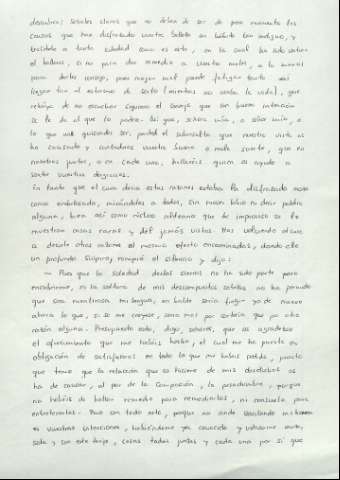 descubren; señales claras que no deben de ser de poco momento las
causas que han disfrazado vuestra belleza en hábito tan indigno, y
traídola a tanta soledad como es esta, en la cual ha sido ventura
el hallaros, si no para dar remedio a vuestros males, a lo menos
para darles consejo, pues ningún mal puede fatigar tanto ni
llegar tan al extremo de serlo (mientras no acaba la vida), que
rehúya de no escuchar siquiera el consejo que con buena intención
se le da al que lo padece. Así que, señora mía, o señor mío, o
lo que vos quisierdes ser, perded el sobresalto que nuestra vista os
ha causado y contadnos vuestra buena o mala suerte, que en
nosotros juntos, o en cada uno, hallaréis quien os ayude a
sentir vuestras desgracias.
En tanto que el cura decía estas razones estaba la disfrazada moza
como embelesada, mirándolos a todos, sin mover labio ni decir palabra
alguna, bien así como rústico aldeano que de improviso se le
muestran cosas raras y del jamás vistas. Mas volviendo el cura
a decirle otras razones al mesmo efeto encaminadas, dando ella
un profundo suspiro, rompió el silencio y dijo:
— Pues que la soledad destas sierras no ha sido parte para
encubrirme, ni la soltura de mis descompuestos cabellos no ha permitido
que sea mentirosa mi lengua, en balde sería fingir yo de nuevo
ahora lo que, si se me creyese, sería más por cortesía que por otra
razón alguna. Presupuesto esto, digo, señores, que os agradezco
el ofrecimiento que me habéis hecho, el cual me ha puesto en
obligación de satisfaceros en todo lo que me habéis pedido, puesto
que temo que la relación que os hiciere de mis desdichas os
ha de causar, al par de la compasión, la pesadumbre, porque
no habéis de hallar remedio para remediarlas, ni consuelo para
entretenerlas. Pero con todo esto, porque no ande vacilando mi honra
en vuestras intenciones, habiéndome ya conocido y viéndome moza,
sola y con este traje, cosas todas juntas y cada una por sí que